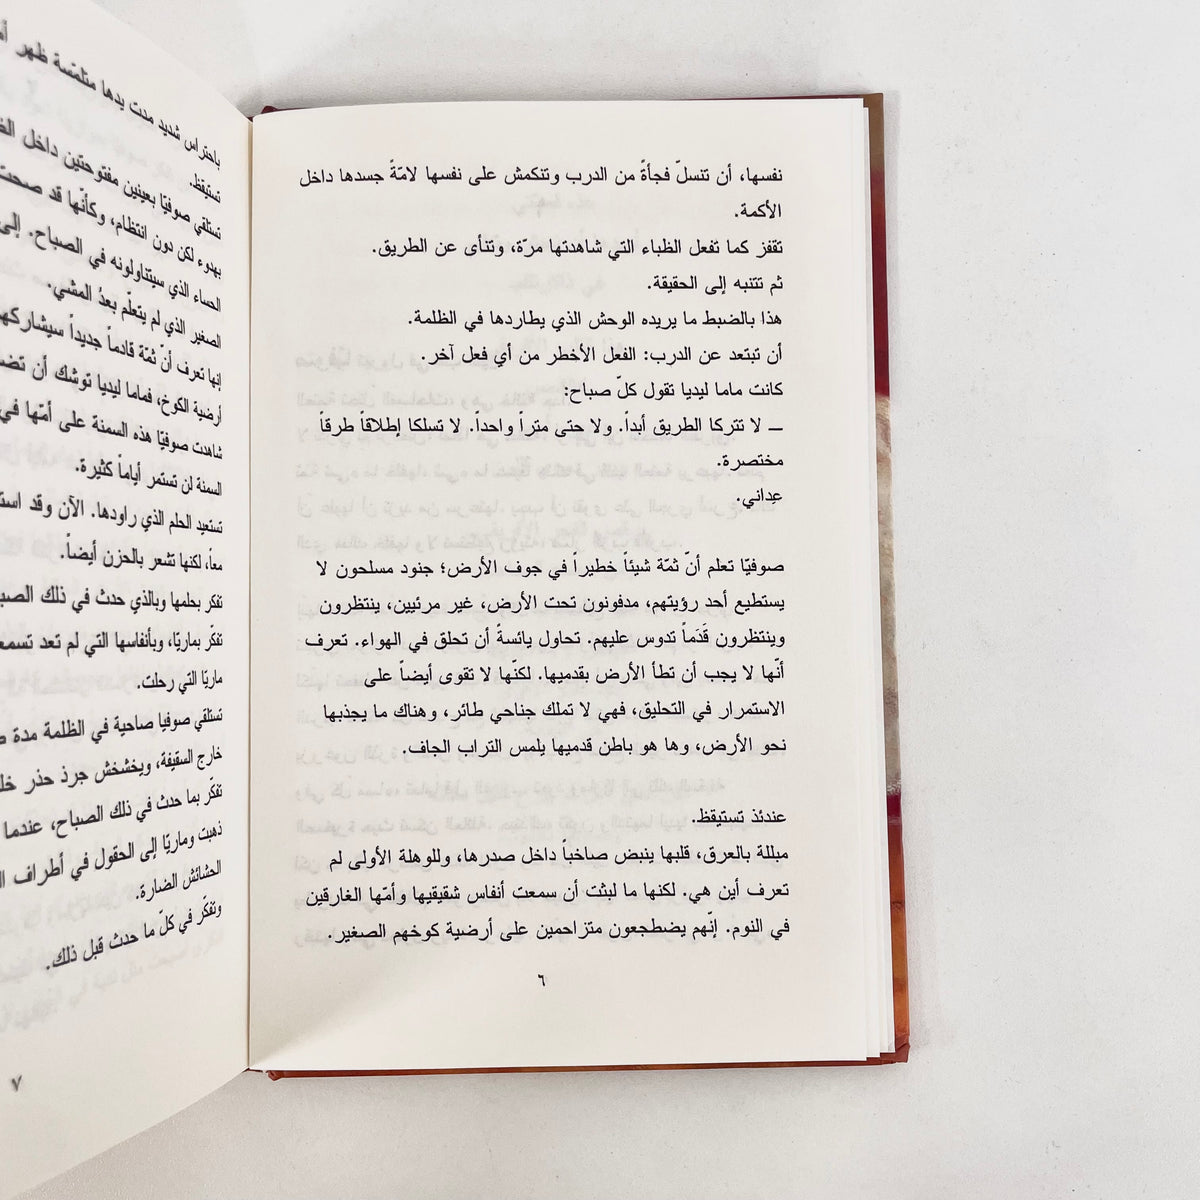 نفسها، أن تنسلّ فجأةً من الدرب وتنكمش على نفسها لامّةً جسدها داخل
الأكمة.
تقفز كما تفعل الظباء التي شاهدتها مرّة، وتنأى عن الطريق.
ثم تتنبه إلى الحقيقة.
هذا بالضبط ما يريده الوحش الذي يطاردها في الظلمة.
أن تبتعد عن الدرب: الفعل الأخطر من أي فعل آخر.
كانت ماما ليديا تقول كلّ صباح:
ــ لا تتركا الطريق أبداً. ولا حتى متراً واحداً. لا تسلكا إطلاقاً طرقاً
مختصرة.
عِداني.
صوفيّا تعلم أنّ ثمّة شيئاً خطيراً في جوف الأرض؛ جنود مسلحون لا
يستطيع أحد رؤيتهم، مدفونون تحت الأرض، غير مرئيين، ينتظرون
وينتظرون قَدَماً تدوس عليهم. تحاول يائسةً أن تحلق في الهواء. تعرف
أنّها لا يجب أن تطأ الأرض بقدميها. لكنّها لا تقوى أيضاً على
الاستمرار في التحليق، فهي لا تملك جناحي طائر، وهناك ما يجذبها
نحو الأرض، وها هو باطن قدميها يلمس التراب الجاف.
عندئذ تستيقظ.
مبللة بالعرق، قلبها ينبض صاخباً داخل صدرها، وللوهلة الأولى لم
تعرف أين هي. لكنها ما لبثت أن سمعت أنفاس شقيقيها وأمّها الغارقين
في النوم. إنّهم يضطجعون متزاحمين على أرضية كوخهم الصغير.
٦
باحتراس شديد مدت يدها متلمّسة ظهر
تستيقظ.
تستلقي صوفيّا بعينين مفتوحتين داخل
بهدوء لكن دون انتظام، وكأنّها قد صحت
الحساء الذي سيتناولونه في الصباح. إلى
الصغير الذي لم يتعلّم بعدُ المشي.
إنها تعرف أنّ ثمّة قادماً جديداً سيشاركهم
أرضية الكوخ، فماما ليديا توشك أن
شاهدت صوفيّا هذه السمنة على أمّها في
السمنة لن تستمر أياماً كثيرة.
تستعيد الحلم الذي راودها. الآن وقد
معاً، لكنها تشعر بالحزن أيضاً.
تفكر بحلمها وبالذي حدث في ذلك
تفكّر بماريّا، وبأنفاسها التي لم تعد
ماريّا التي رحلت.
تستلقي صوفيا صاحية في الظلمة مدة
خارج السقيفة، ويخشخش جرذ حذر
تفكّر بما حدث في ذلك الصباح، عندما
ذهبت وماريّا إلى الحقول في أطراف
الحشائش الضارة.
وتفكّر في كلّ ما حدث قبل ذلك.
٧